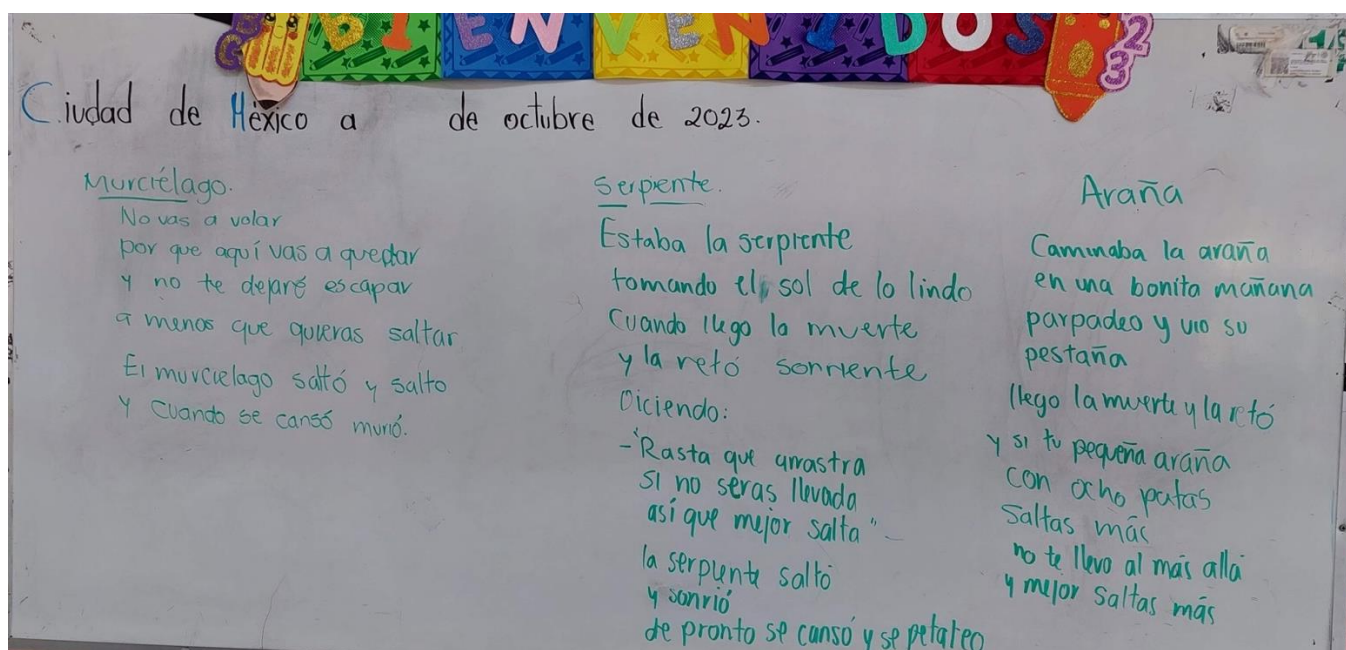 BIENVENIDOS
23
Ciudad de México a de octubre de 2023.
Murciélago.
No vas a volar
por que aquí vas a quedar
y no te dejaré escapar
a menos que quieras saltar
El murcielago saltó y salto
y cuando se cansó murió.
Serpiente.
Estaba la serpiente
tomando el sol de lo lindo
Cuando llego la muerte
y la retó sonriente
Diciendo:
-"Rasta que arrastra
si no seras llevada
así que mejor salta"-
la serpiente saltó
y sonrió
de pronto se cansó y se petateo
Araña
Caminaba la araña
en una bonita mañana
parpadeo y vio su
pestaña
llego la muerte y la retó
y si tu pequeña araña
con ocho patas
Saltas más
no te llevo al más allá
y mejor saltas más